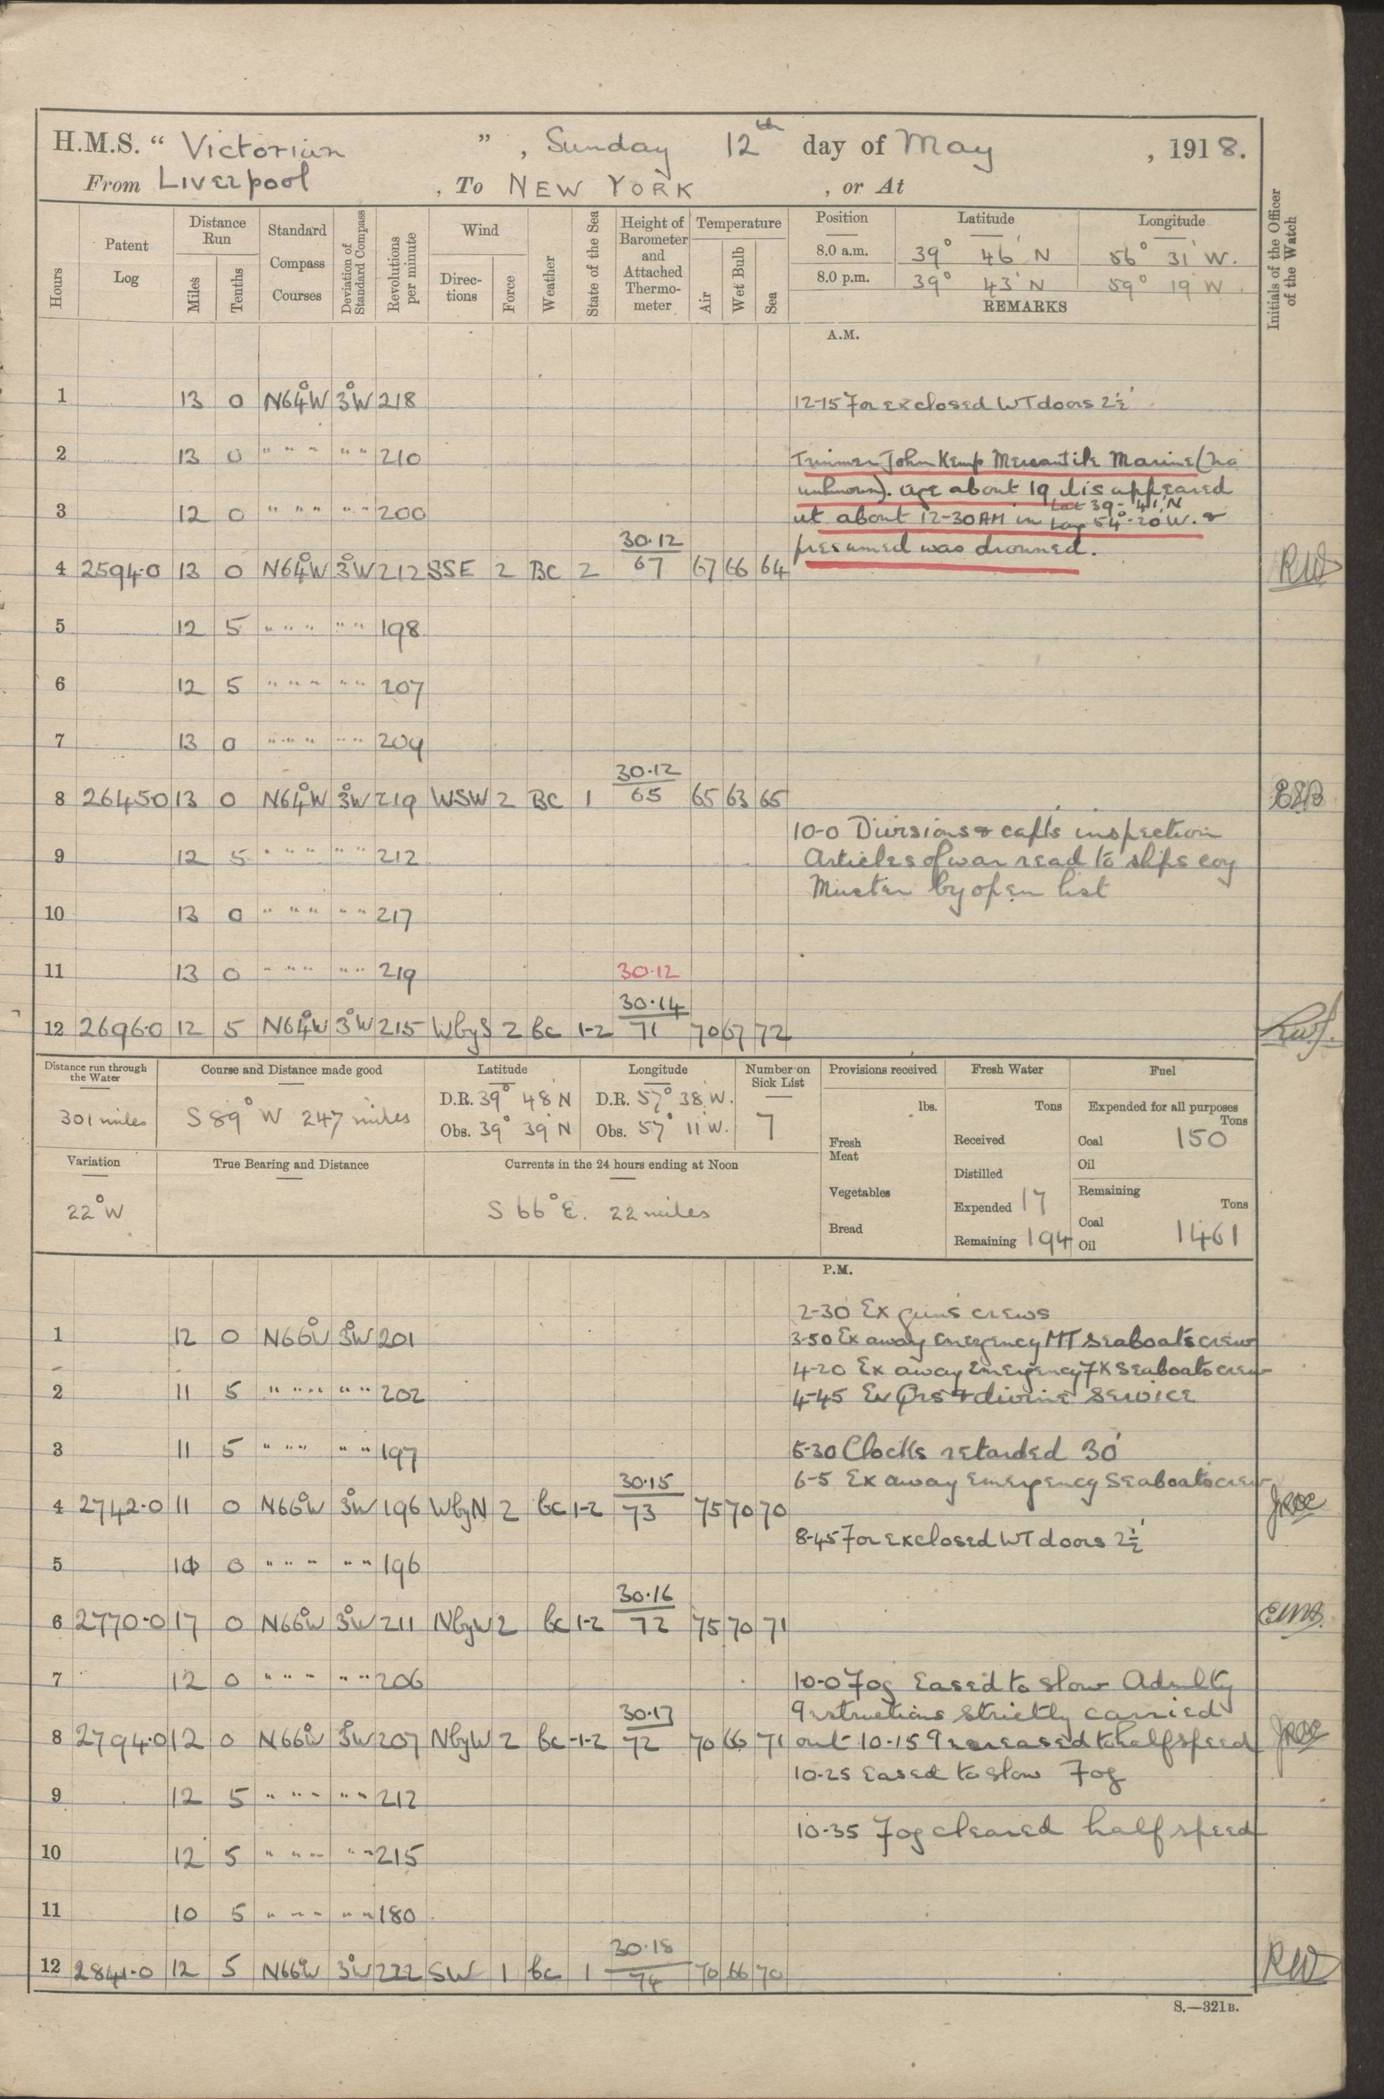 H.M.S. “ Victorian ” , Sunday 12th day of May , 1918.
From Liverpool , To NEW YORK , or At
Hours
Patent Log
Distance Run
Miles
Tenths
Standard Compass Courses
Deviation of Standard Compass
Revolutions per minute
Wind
Directions
Force
Weather
State of the Sea
Height of Barometer and Attached Thermometer
Temperature
Air
Wet Bulb
Sea
Position Latitude Longitude
8.0 a.m. 39° 46' N 56° 31' W.
8.0 p.m. 39° 43' N 59° 19' W.
REMARKS
Initials of the Officer of the Watch
A.M.
1 13 0 N64°W 3°W 218 12-15 For ex closed WT doors 2½'
2 13 0 " " " " " 210 Trimmer John Kemp Mercantile Marine (no
unknown). age about 19 disappeared
3 12 0 " " " " " 200 at about 12-30 AM in Lat 39-41'N Long 54°-20'W. &
presumed was drowned.
4 2594.0 13 0 N64°W 3°W 212 SSE 2 BC 2 30.12 67 67 66 64 RW
5 12 5 " " " " " 198
6 12 5 " " " " " 207
7 13 0 " " " " " 209
8 2645.0 13 0 N64°W 3°W 219 WSW 2 BC 1 30.12 65 65 63 65
10-0 Divisions & capts inspection
9 12 5 " " " " " 212 Articles of war read to ships coy
Muster by open list
10 13 0 " " " " " 217
11 13 0 " " " " " 219 30.12
12 2696.0 12 5 N64°W 3°W 215 WbyS 2 bc 1-2 30.14 71 70 67 72
Distance run through the Water
301 miles
Course and Distance made good
S 89° W 247 miles
Latitude
D.R. 39° 48' N
Obs. 39° 39' N
Longitude
D.R. 57° 38' W.
Obs. 57° 11' W.
Number on Sick List
7
Variation
22°W
True Bearing and Distance
Currents in the 24 hours ending at Noon
S 66° E. 22 miles
Provisions received
lbs.
Fresh Meat
Vegetables
Bread
Fresh Water
Tons
Received
Distilled
Expended 17
Remaining 194
Fuel
Expended for all purposes
Tons
Coal 150
Oil
Remaining
Tons
Coal 1461
Oil
P.M.
2-30 Ex guns crews
1 12 0 N66°W 3°W 201 3-50 Ex away Emergency MT Seaboats crew
4-20 Ex away Emergency FX Seaboats crew
2 11 5 " " " " " 202 4-45 Ev Qrs & divine Service
3 11 5 " " " " " 197 5-30 Clocks retarded 30'
6-5 Ex away Emergency Seaboats crew
4 2742.0 11 0 N66°W 3°W 196 WbyN 2 bc 1-2 30.15 73 75 70 70
8-45 For ex closed WT doors 2½'
5 10 0 " " " " " 196
6 2770.0 17 0 N66°W 3°W 211 NbyW 2 bc 1-2 30.16 72 75 70 71
7 12 0 " " " " " 206 10-0 Fog Eased to slow Admlty
Instructions strictly carried
8 2794.0 12 0 N66°W 3°W 207 NbyW 2 bc 1-2 30.17 72 70 66 71 out 10-15 Increased to half speed
10-25 Eased to slow Fog
9 12 5 " " " " " 212
10-35 Fog cleared half speed
10 12 5 " " " " " 215
11 10 5 " " " " " 180
12 2841.0 12 5 N66°W 3°W 222 SW 1 bc 1 30.18 74 70 66 70 RW
S.—321B.